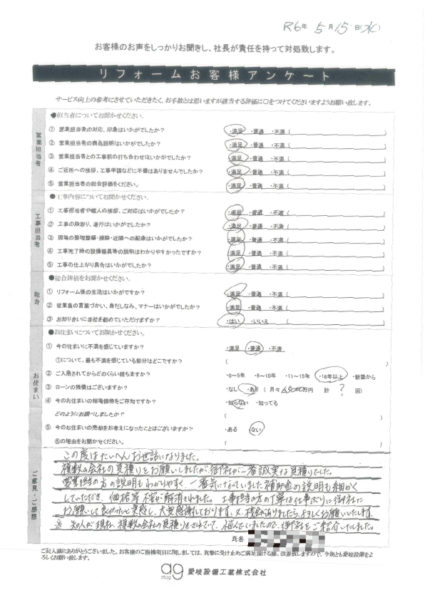 R6年 5月 15日(水)
お客様のお声をしっかりお聞きし、社長が責任を持って対処致します。
リフォームお客様アンケート
サービス向上の参考にさせていただきたく、お手数とは思いますが該当する評価に○をつけてくださいますようお願い致します。
営業担当者
●担当者についてお聞かせください。
① 営業担当者の対応、印象はいかがでしたか? ・満足 ・普通 ・不満(
② 営業担当者の商品説明はいかがでしたか? ・満足 ・普通 ・不満(
③ 営業担当者との工事前の打ち合わせはいかがでしたか? ・満足 ・普通 ・不満(
④ ご近所への挨拶、工事申請などに不備はありませんでしたか? ・満足 ・普通 ・不満(
⑤ 営業担当者の総合評価をください。 ・満足 ・普通 ・不満(
工事担当者
●工事内容についてお聞かせください。
① 工事担当者や職人の挨拶、ご対応はいかがでしたか? ・満足 ・普通 ・不満(
② 工事の段取り、進行はいかがでしたか? ・満足 ・普通 ・不満(
③ 現場の整理整頓・清掃・近隣への配慮はいかがでしたか? ・満足 ・普通 ・不満(
④ 工事完了時の設備器具等の説明はわかりやすかったですか? ・満足 ・普通 ・不満(
⑤ 工事の仕上がり具合はいかがでしたか? ・満足 ・普通 ・不満(
総合
●総合評価をお聞かせください。
① リフォーム後の生活はいかがですか? ・満足 ・普通 ・不満(
② 従業員の言葉づかい、身だしなみ、マナーはいかがでしたか? ・満足 ・普通 ・不満(
③ お知り合いに当社を勧めていただけますか? ・はい ・いいえ(
お住まい
●お住まいについてお聞かせください。
① 今の住まいに不満を感じていますか? ・満足 ・普通 ・不満
①について、最も不満を感じている部分はどこですか? (
② ご入居されてからどのくらい経ちますか? ・0～5年 ・6～10年 ・11～15年 ・16年以上 ・新築から
③ ローンの残債はございますか? ・なし ・ある (月々 円 計 ? 回)
④ 今のお住まいの相場価格をご存知ですか? ・知らない ・知ってる
どのようにお調べしましたか? (
⑤ 今のお住まいの売却をお考えになったことはありますか? ・ある ・ない
⑤の理由をお聞かせください。 (
ご意見・ご感想
この度はたいへんお世話になりました。
複数の会社の見積りをお願いしましたが、御社が一番誠実な見積りでした。
営業担当の方の説明もわかりやすく、一番気になっていました補助金の説明も細かく
していただき、価格等不安が解消されました。工事担当の方の丁寧な仕事ぶりに御社に
お願いして良かったと実感し、大変感謝しております。又 機会がありましたらよろしくお願いいたします。
※ 知人が現在、複数の会社の見積りをされてて、悩んでいたので、御社をご紹介いたしました。
氏名
ご記入誠にありがとうございました。
ag
愛岐設備工業株式会社